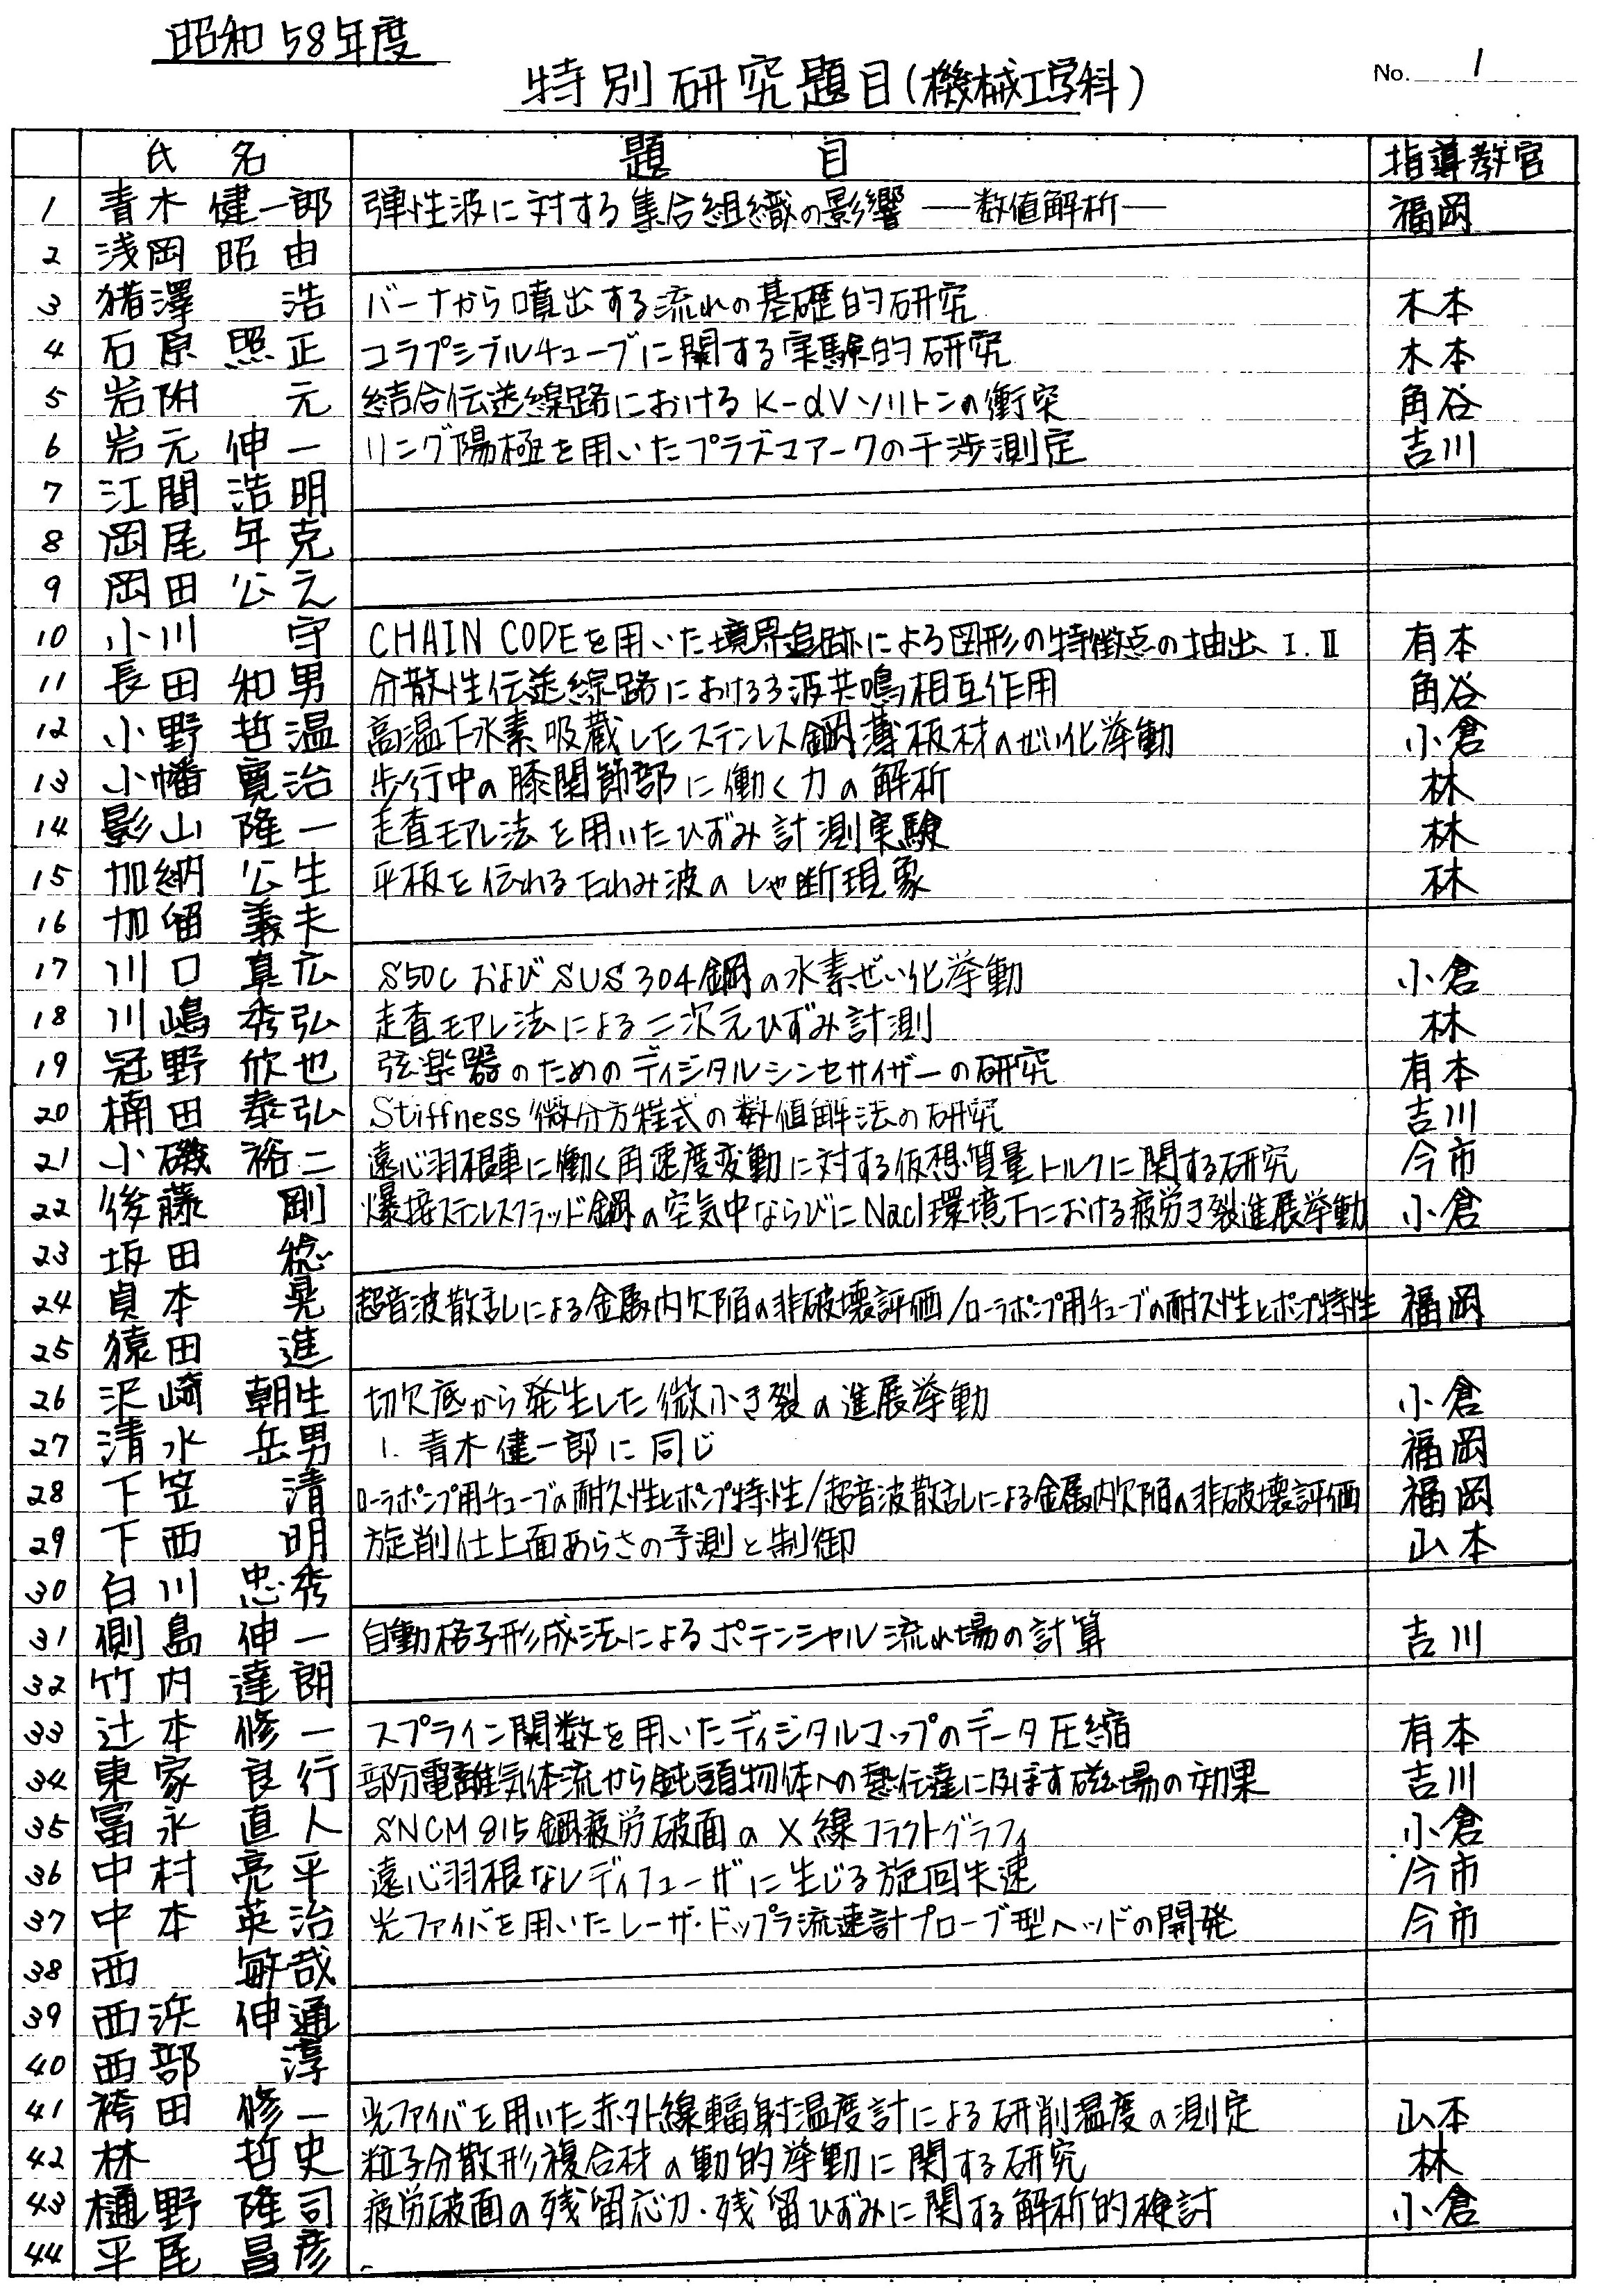 昭和58年度
特別研究題目(機械工学科)
No. 1
氏名 題目 指導教官
1 青木 健一郎 弾性波に対する集合組織の影響 ―数値解析― 福岡
2 浅岡 昭由
3 猪澤 浩 バーナから噴出する流れの基礎的研究 木本
4 石原 照正 コラプシブルチューブに関する実験的研究 木本
5 岩附 元 結合伝送線路におけるK-dVソリトンの衝突 角谷
6 岩元 伸一 リング陽極を用いたプラズマアークの干渉測定 吉川
7 江間 浩明
8 岡尾 年克
9 岡田 公之
10 小川 守 CHAIN CODEを用いた境界追跡による図形の特徴点の抽出 I.II 有本
11 長田 和男 分散性伝送線路における3波共鳴相互作用 角谷
12 小野 哲温 高温下水素吸蔵したステンレス鋼薄板材のぜい化挙動 小倉
13 小幡 寛治 歩行中の膝関節部に働く力の解析 林
14 影山 隆一 走査モアレ法を用いたひずみ計測実験 林
15 加納 公生 平板を伝わるたわみ波のしゃ断現象 林
16 加留 義夫
17 川口 真広 S50CおよびSUS304鋼の水素ぜい化挙動 小倉
18 川嶋 秀弘 走査モアレ法による二次元ひずみ計測 林
19 冠野 欣也 弦楽器のためのディジタルシンセサイザーの研究 有本
20 楠田 泰弘 Stiffness微分方程式の数値解法の研究 吉川
21 小磯 裕二 遠心羽根車に働く角速度変動に対する仮想質量トルクに関する研究 今市
22 後藤 剛 爆接ステンレスクラッド鋼の空気中ならびにNacl環境下における疲労き裂進展挙動 小倉
23 坂田 稔
24 貞本 晃 超音波散乱による金属内欠陥の非破壊評価/ローラポンプ用チューブの耐久性とポンプ特性 福岡
25 猿田 進
26 沢崎 朝生 切欠底から発生した微小き裂の進展挙動 小倉
27 清水 岳男 1. 青木健一郎に同じ 福岡
28 下笠 清 ローラポンプ用チューブの耐久性とポンプ特性/超音波散乱による金属内欠陥の非破壊評価 福岡
29 下西 明 旋削仕上面あらさの予測と制御 山本
30 白川 忠秀
31 側島 伸一 自動格子形成法によるポテンシャル流れ場の計算 吉川
32 竹内 達朗
33 辻本 修一 スプライン関数を用いたディジタルマップのデータ圧縮 有本
34 東家 良行 部分電離気体流から鈍頭物体への熱伝達に及ぼす磁場の効果 吉川
35 冨永 直人 SNCM815鋼疲労破面のX線フラクトグラフィ 小倉
36 中村 亮平 遠心羽根なしディフューザに生じる旋回失速 今市
37 中本 英治 光ファイバを用いたレーザ・ドップラ流速計プローブ型ヘッドの開発 今市
38 西 敏哉
39 西浜 伸通
40 西部 淳
41 袴田 修一 光ファイバを用いた赤外線輻射温度計による研削温度の測定 山本
42 林 哲史 粒子分散形複合材の動的挙動に関する研究 林
43 樋野 隆司 疲労破面の残留応力・残留ひずみに関する解析的検討 小倉
44 平尾 昌彦